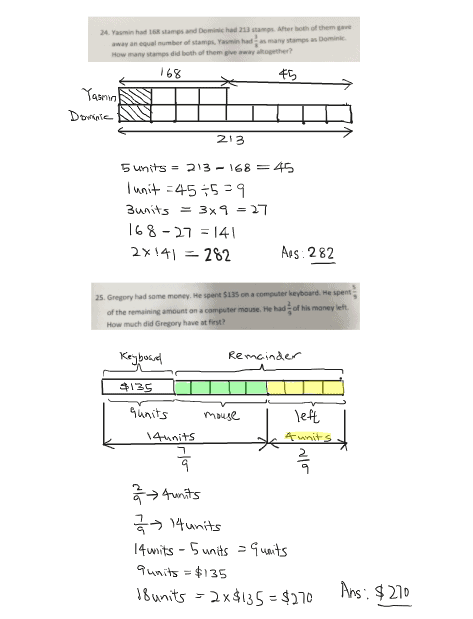 24. Yasmin had 168 stamps and Dominic had 213 stamps. After both of them gave
away an equal number of stamps, Yasmin had 3/8 as many stamps as Dominic.
How many stamps did both of them give away altogether?
168 45
Yasmin
Dominic
213
5 units = 213 - 168 = 45
1 unit = 45 ÷ 5 = 9
3 units = 3 x 9 = 27
168 - 27 = 141
2 x 141 = 282 Ans: 282
25. Gregory had some money. He spent $135 on a computer keyboard. He spent 5/9
of the remaining amount on a computer mouse. He had 2/9 of his money left.
How much did Gregory have at first?
Keyboard Remainder
$135
9 units mouse left
14 units 4 units
7/9 2/9
2/9 → 4 units
7/9 → 14 units
14 units - 5 units = 9 units
9 units = $135
18 units = 2 x $135 = $270 Ans: $270